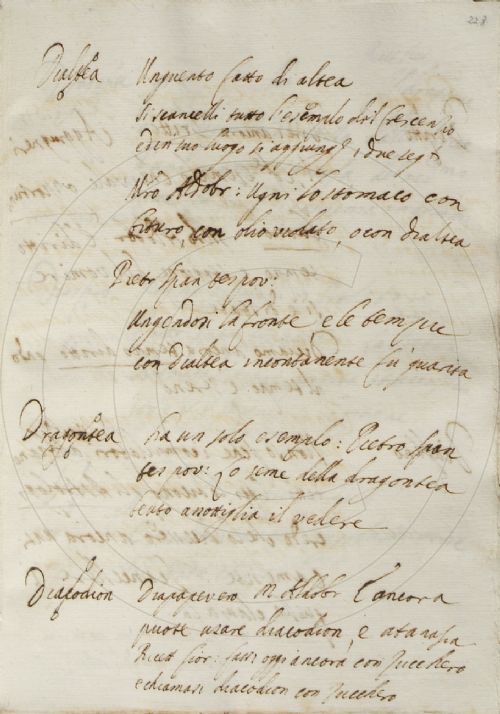 228
Dialtea Unguento fatto di altea
Si scancelli tutto l'esemplo del Crescenzio
ed in suo luogo si aggiung, i due seg.ti
M.ro Aldobr: Ugni lo stomaco con
bituro, con olio violato, o con dialtea
Pietr Span tes pov:
Ungendosi la fronte e le tempie
con dialtea incontanente fu guarita
Dragontea ha un solo esemplo: Pietro Span
tes pov: Lo seme della dragontea
assottiglia il vedere
Diacodion Diapapevero M Aldobr E ancora
puote usare diacodion, e atanasia
Ricett fior: fassi oggi ancora con Zucchero
e chiamasi diacodion con Zucchero